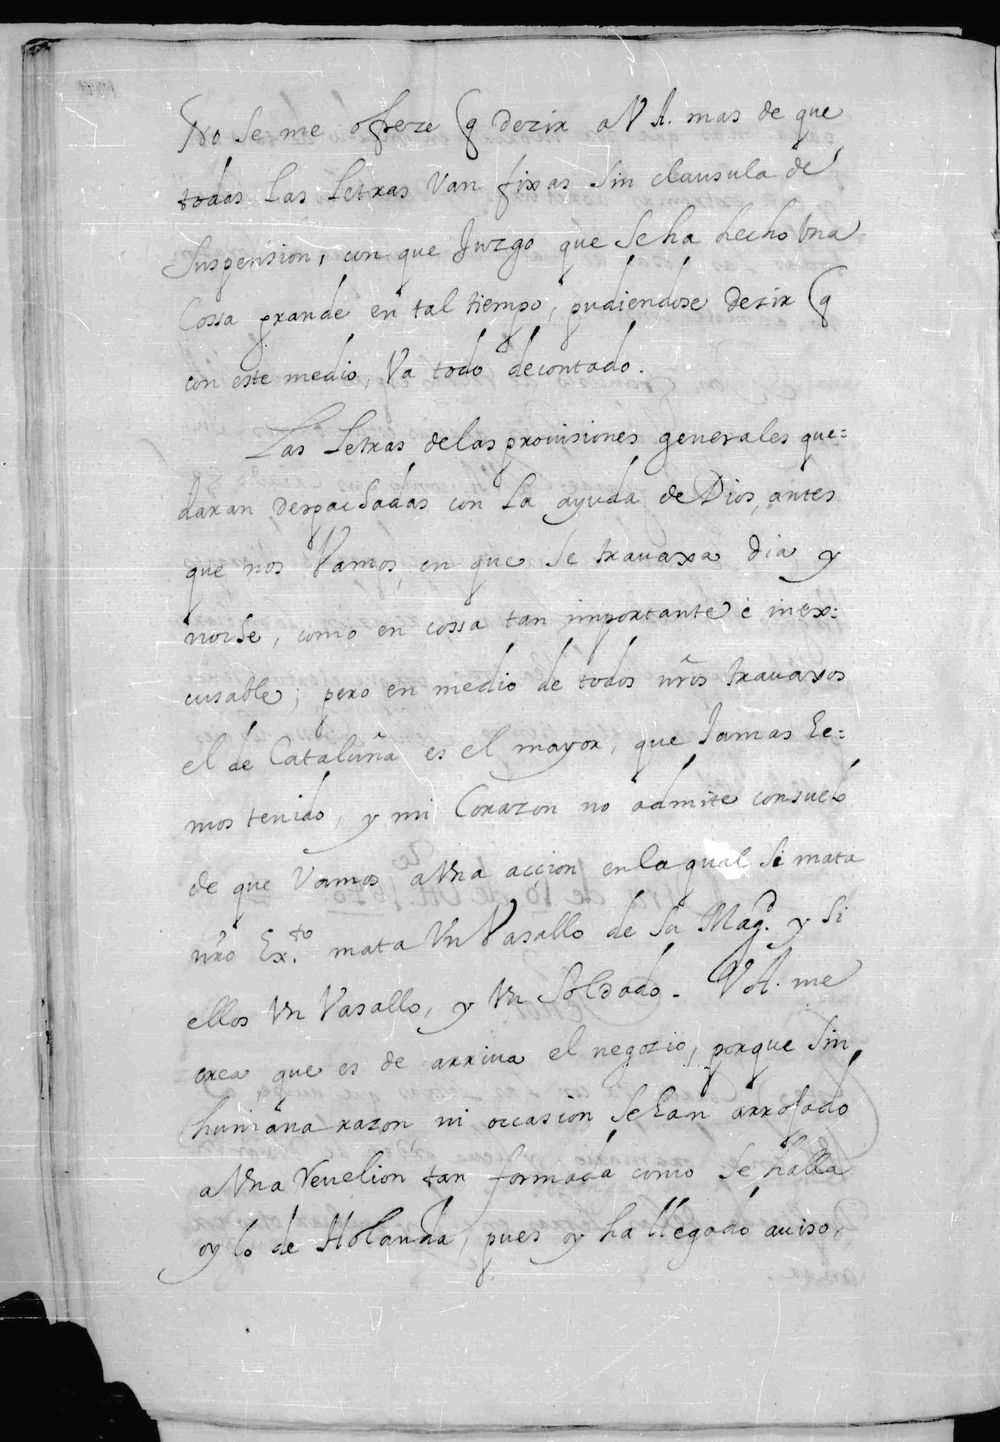 No se me ofreze q dezir a V A. mas de que
todas las letras van fixas sin clausula de
suspension, con que Juzgo que se ha hecho Una
Cossa grande en tal tiempo, pudiendose dezir q
con este medio, Va todo decontado.
Las letras delas prouisiones generales que=
daran despachadas con la ayuda de Dios, antes
que nos Vamos, en que se trauaxa dia y
noche, como en cossa tan importante è inex=
cusable; pero en medio de todos nr̃os trauaxos
el de Cataluña es el mayor, que Jamas he=
mos tenido, y mi Corazon no admite consuelo
de que Vamos a Vna acçion en la qual si mata
nr̃o Ex.to mata Vn Vasallo de su Mag.d y si
ellos Vn Vasallo, y Vn soldado. V A. me
crea que es de arriua el negozio, porque sin
humana razon ni occasion se han arrojado
a Vna reuelion tan formada como se halla
oy lo de Holanda, pues oy ha llegado auiso,